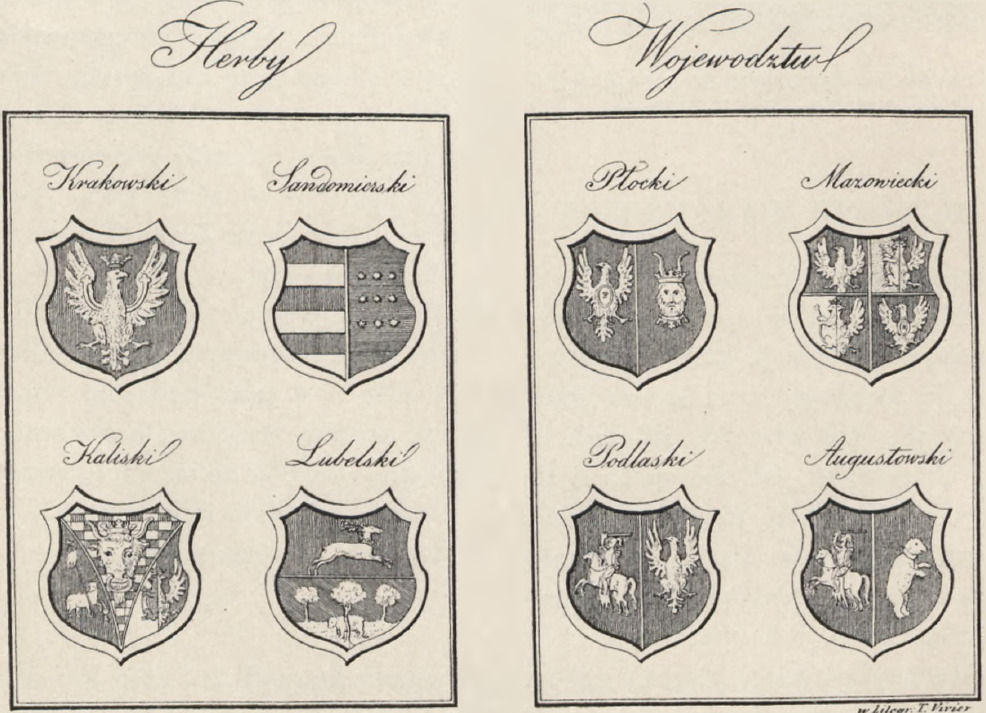 Herby Wojewodztw
Krakowski Sandomierski
Kaliski Lubelski
Płocki Mazowiecki
Podlaski Augustowski
w Litogr. T. Virier